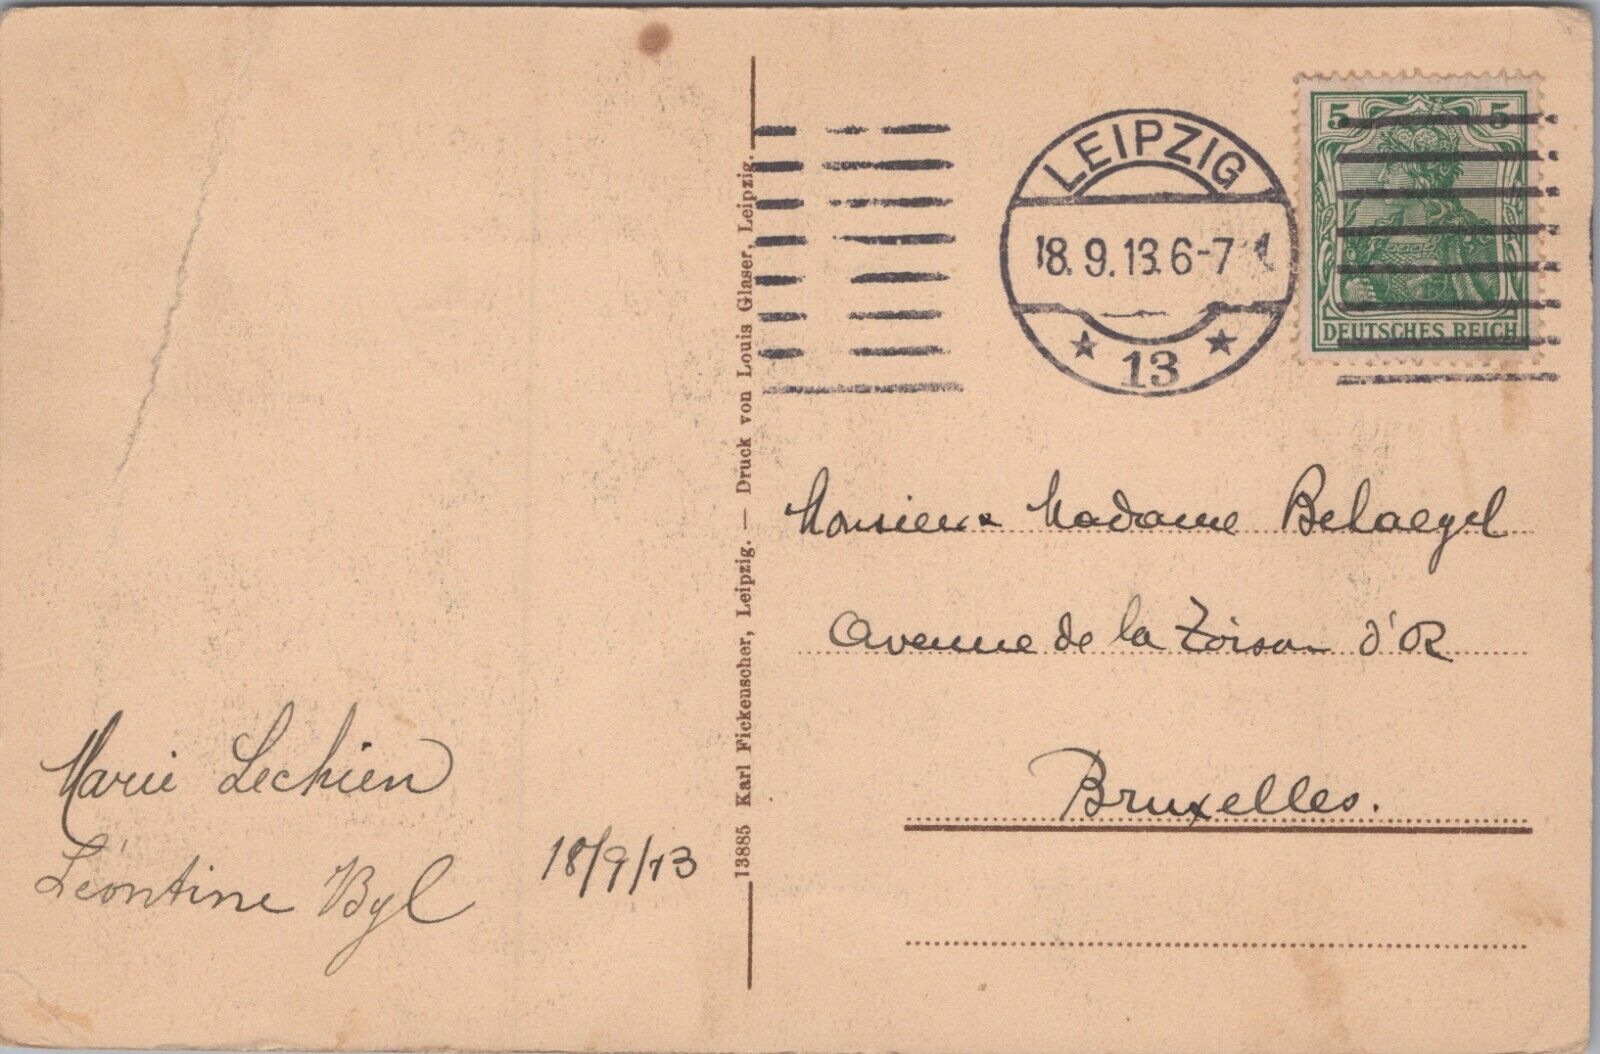 LEIPZIG
18.9.13. 6-7
* 13 *
5 5
DEUTSCHES REICH
13885 Karl Fickenscher, Leipzig. — Druck von Louis Glaser, Leipzig.
Monsieur & Madame Behaegel
Avenue de la Toison d'OR
Bruxelles.
Marie Lechien
Léontine Byl
18/9/13